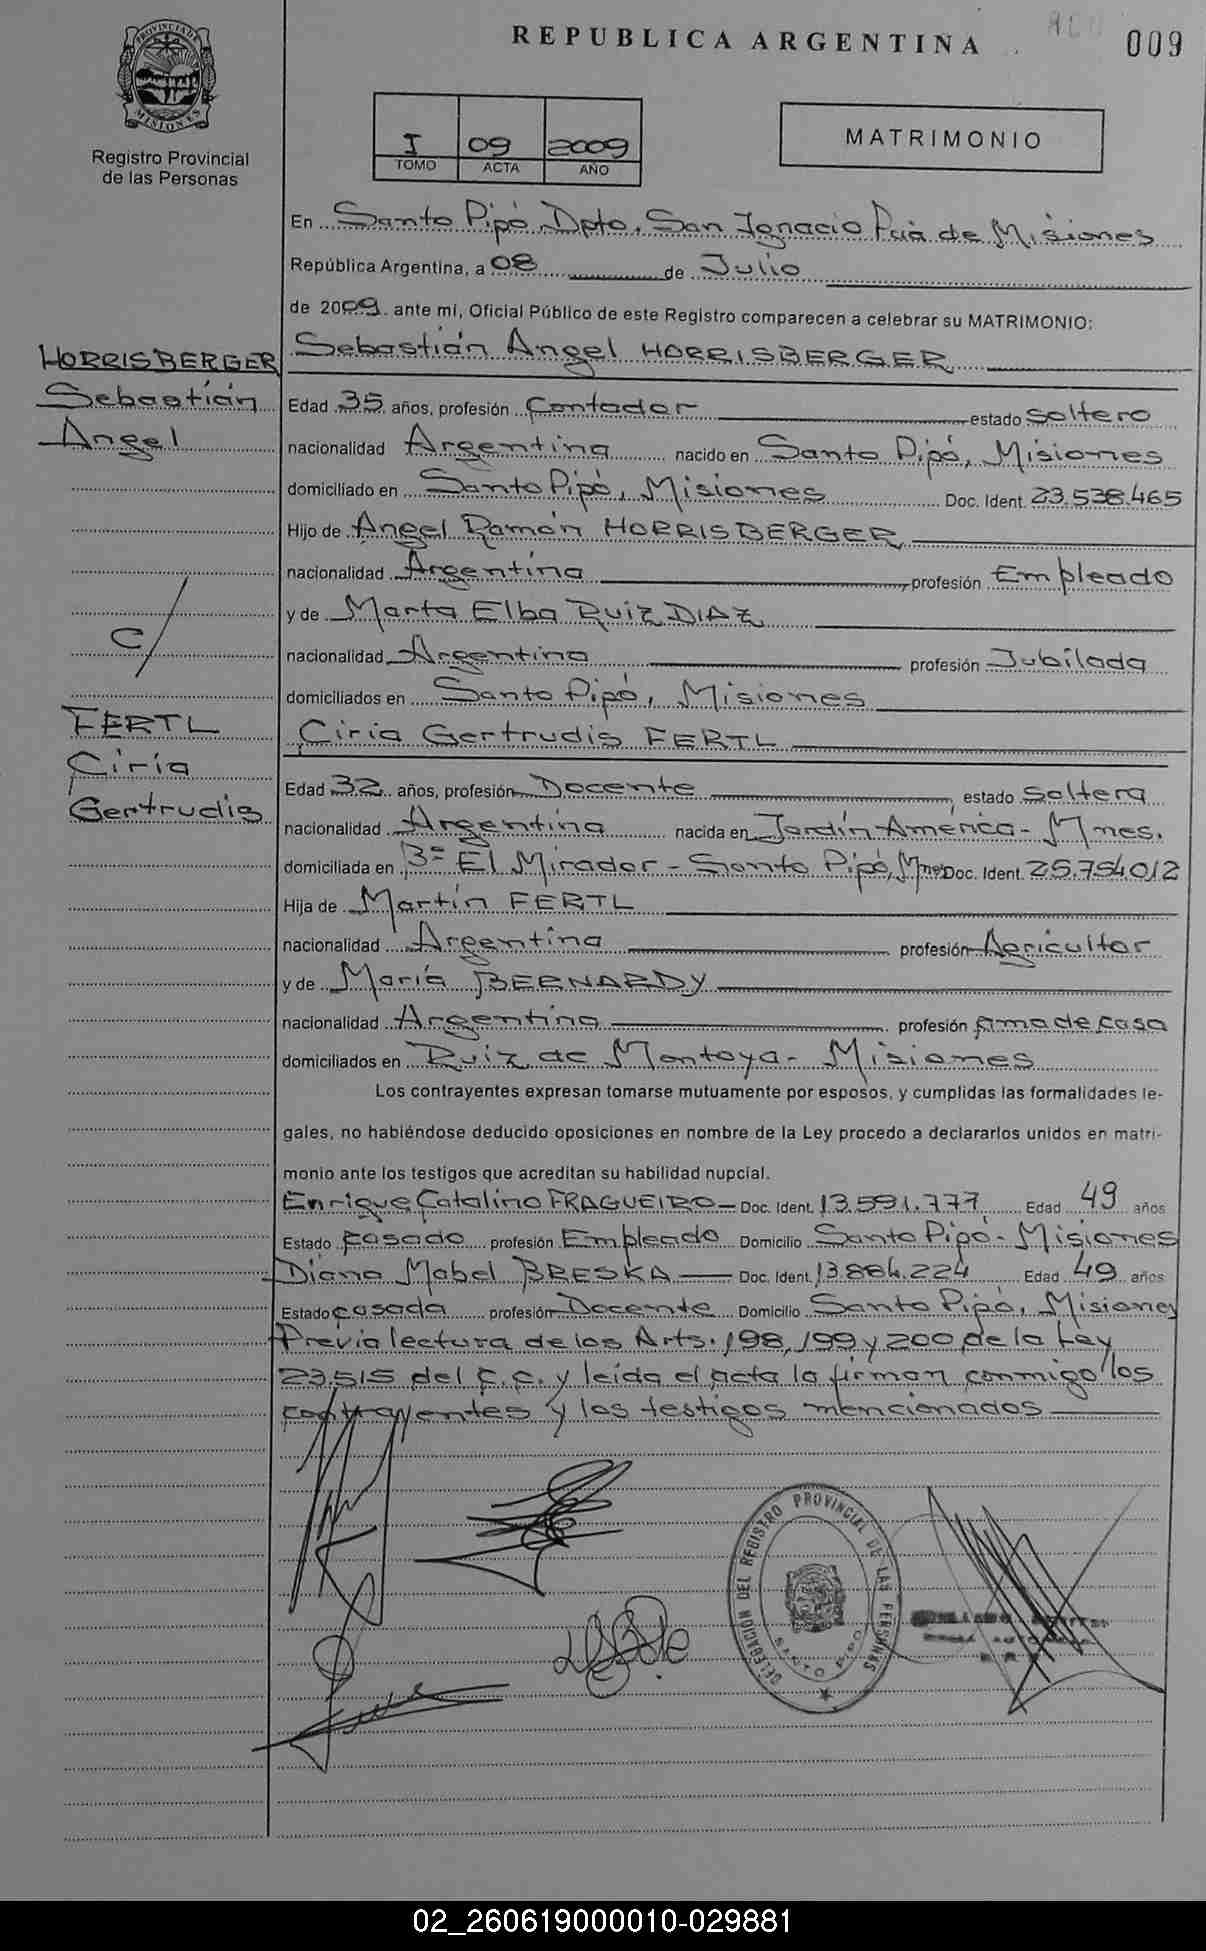 REPUBLICA ARGENTINA
009
PROVINCIA DE
MISIONES
Registro Provincial
de las Personas
I 09 2009
TOMO ACTA AÑO
MATRIMONIO
En Santo Pipó Dpto. San Ignacio Pcia de Misiones
República Argentina, a 08 de Julio
de 2009 ante mi, Oficial Público de este Registro comparecen a celebrar su MATRIMONIO:
HORRISBERGER
Sebastián
Angel
Sebastián Angel HORRISBERGER
Edad 35 años, profesión Contador estado Soltero
nacionalidad Argentina nacido en Santo Pipó, Misiones
domiciliado en Santo Pipó, Misiones Doc. Ident. 23.538.465
Hijo de Angel Ramón HORRISBERGER
nacionalidad Argentina profesión Empleado
y de Marta Elba RUIZ DIAZ
nacionalidad Argentina profesión Jubilada
domiciliados en Santo Pipó, Misiones
C/
FERTL
Ciria
Gertrudis
Ciria Gertrudis FERTL
Edad 32 años, profesión Docente estado Soltera
nacionalidad Argentina nacida en Jardín América - Mnes.
domiciliada en Bº El Mirador - Santo Pipó, Mnes Doc. Ident. 25.754.012
Hija de Martín FERTL
nacionalidad Argentina profesión Agricultor
y de María BERNARDY
nacionalidad Argentina profesión ama de casa
domiciliados en Ruiz de Montoya - Misiones
Los contrayentes expresan tomarse mutuamente por esposos, y cumplidas las formalidades le-
gales, no habiéndose deducido oposiciones en nombre de la Ley procedo a declararlos unidos en matri-
monio ante los testigos que acreditan su habilidad nupcial.
Enrique Catalino FRAGUEIRO - Doc. Ident. 13.591.777 Edad 49 años
Estado casado profesión Empleado Domicilio Santo Pipó - Misiones
Diana Mabel BRESKA - Doc. Ident. 13.884.224 Edad 49 años
Estado casada profesión Docente Domicilio Santo Pipó, Misiones
Previa lectura de los Arts. 198, 199 y 200 de la Ley
23.515 del C.C. y leída el acta la firman conmigo los
contrayentes y los testigos mencionados
DELEGACION DEL REGISTRO PROVINCIAL DE LAS PERSONAS
SANTO PIPO
02_260619000010-029881